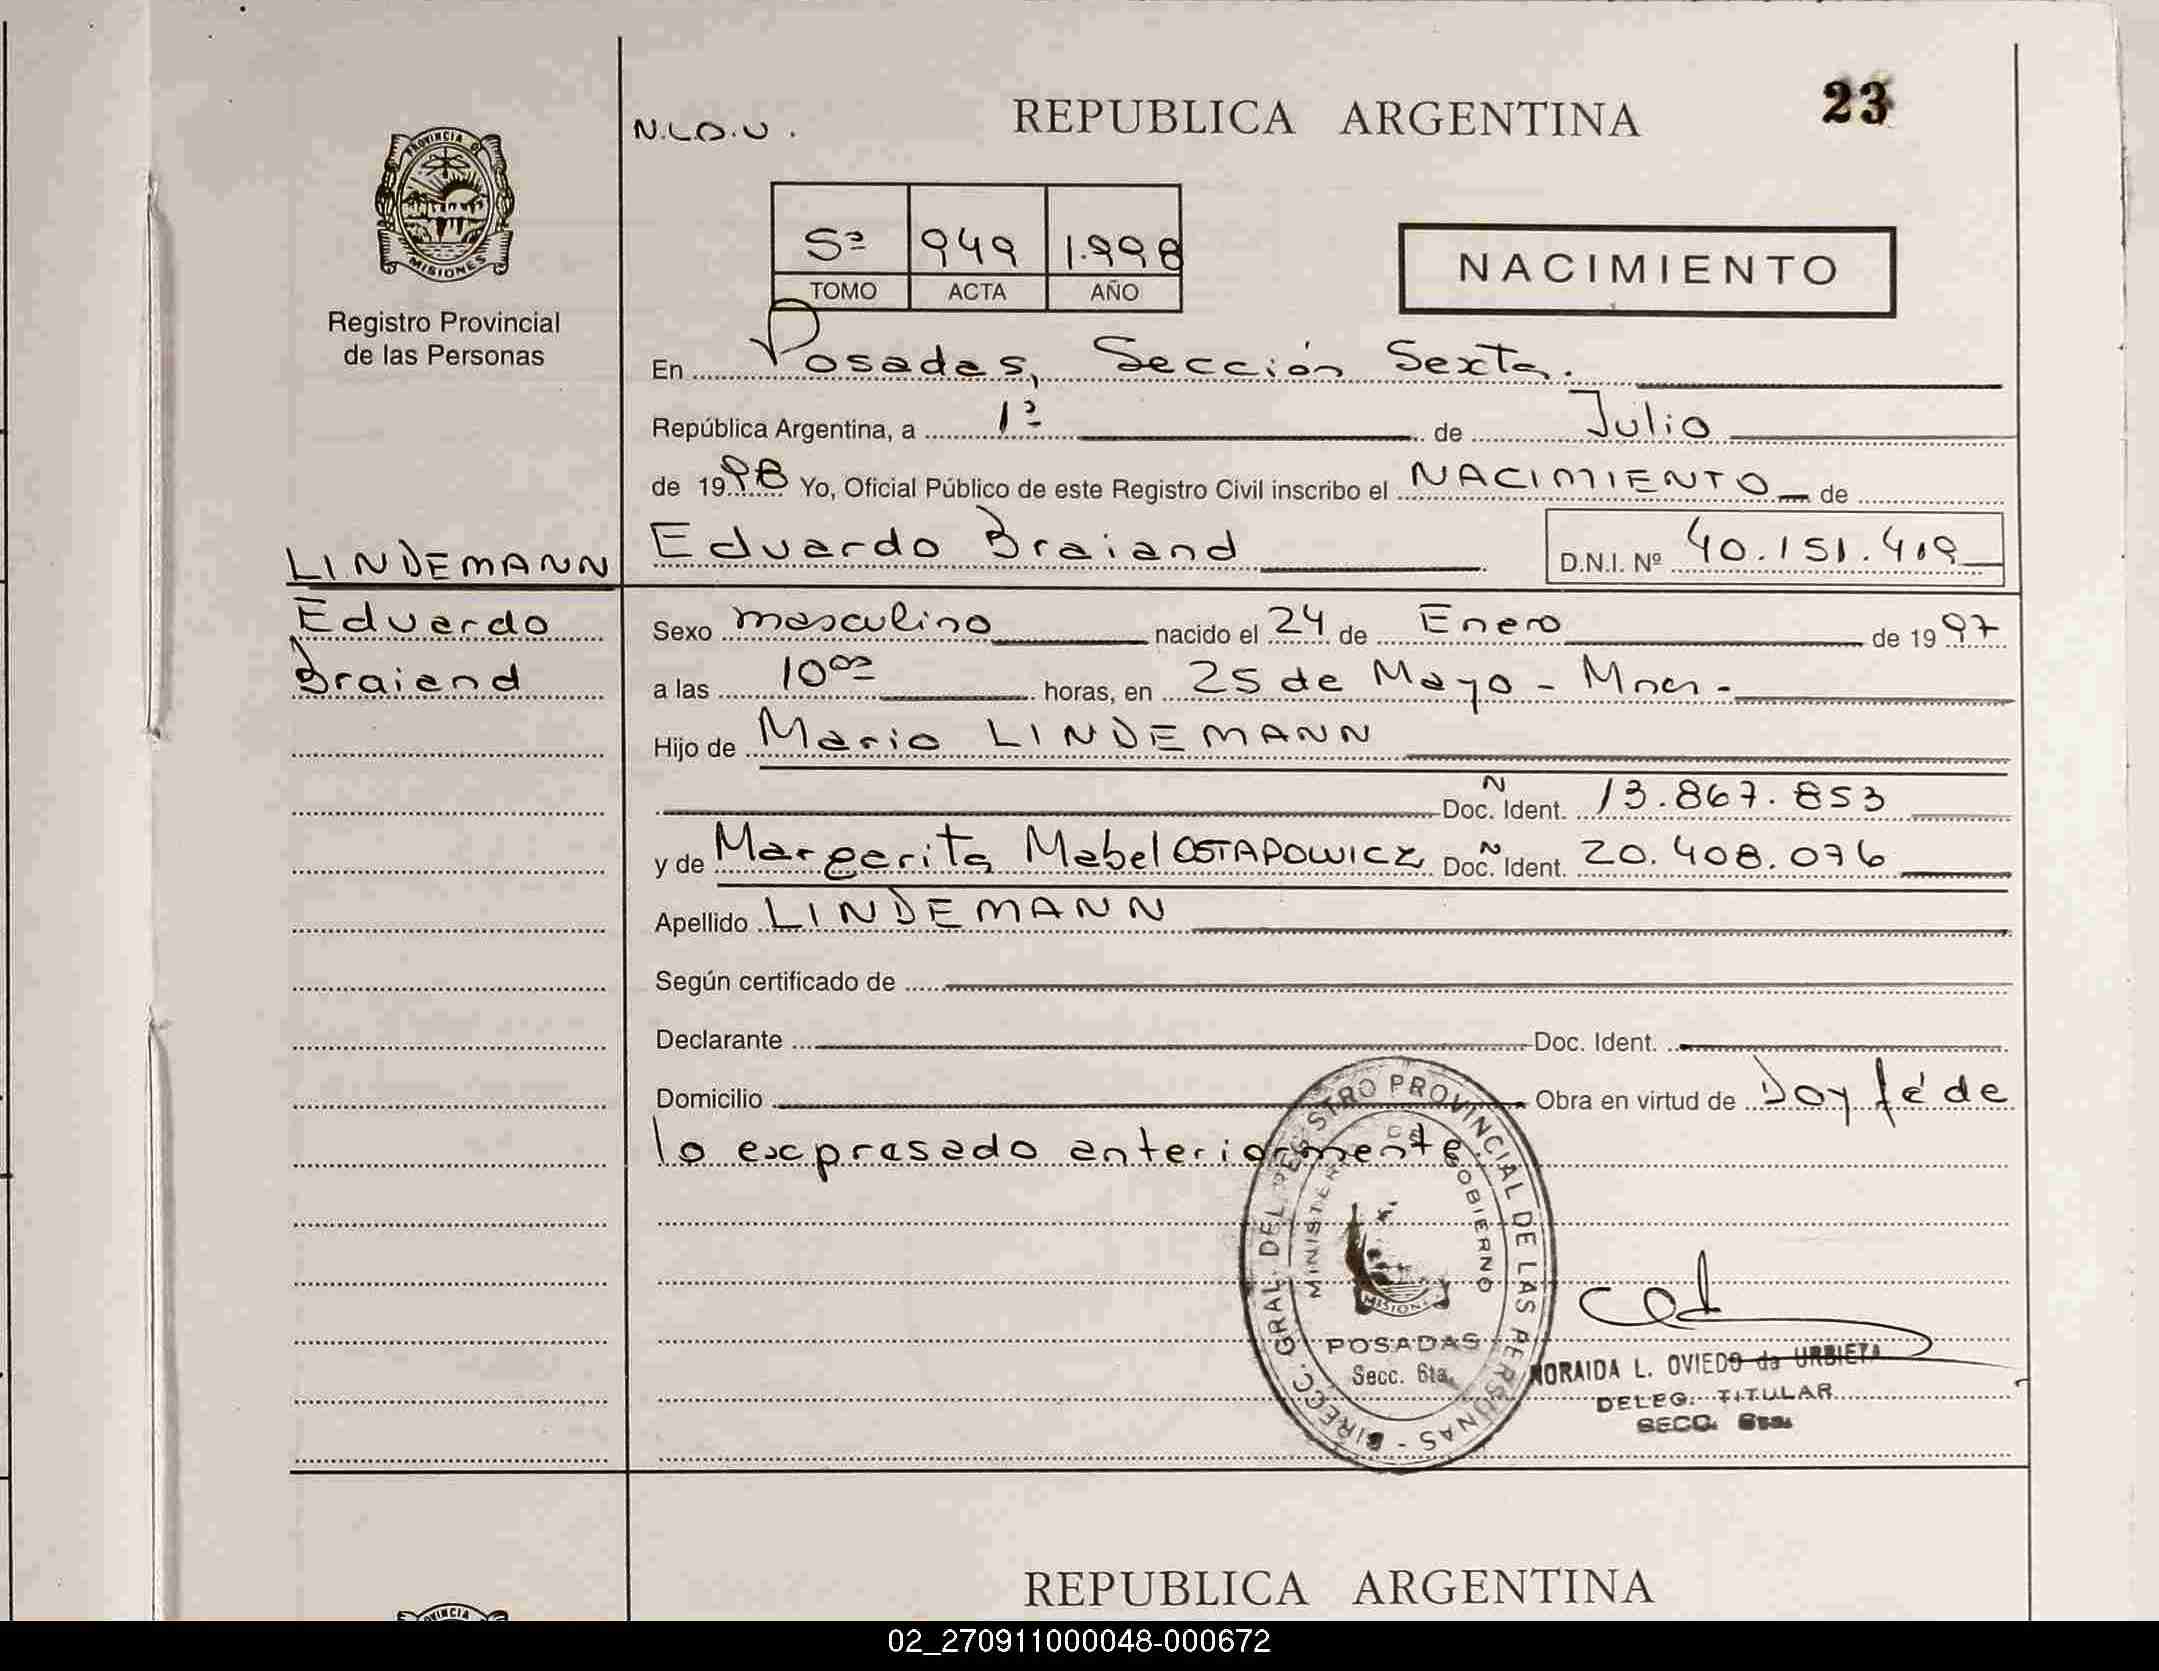 REPUBLICA ARGENTINA
23
PROVINCIA D
MISIONES
Registro Provincial
de las Personas
N.L.O.U.
5º 949 1.998
TOMO ACTA AÑO
NACIMIENTO
En Posadas, Sección Sexta.
República Argentina, a 1º de Julio
de 1998 Yo, Oficial Público de este Registro Civil inscribo el NACIMIENTO de
LINDEMANN Eduardo Braiand D.N.I. Nº 40.151.419
Eduardo
Braiand
Sexo masculino nacido el 24 de Enero de 1997
a las 10⁰⁰ horas, en 25 de Mayo - Mnes -
Hijo de Mario LINDEMANN
Doc. Ident. N 13.867.853
y de Margarita Mabel OSTAPOWICZ Doc. Ident. N 20.408.076
Apellido LINDEMANN
Según certificado de
Declarante Doc. Ident.
Domicilio Obra en virtud de Doy fé de
lo expresado anteriormente
DIRECC. GRAL. DEL REGISTRO PROVINCIAL DE LAS PERSONAS -
MINISTERIO GOBIERNO
MISIONES
POSADAS
Secc. 6ta.
NORAIDA L. OVIEDO de URBIETA
DELEG. TITULAR
SECC. 6ta.
REPUBLICA ARGENTINA
02_270911000048-000672